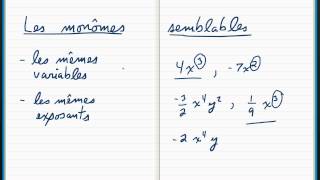 Les monômes semblables
- les mêmes variables
- les mêmes exposants
4x³ , -7x²
-3/2 x⁴y² , 1/9 x³
-2 x⁴y